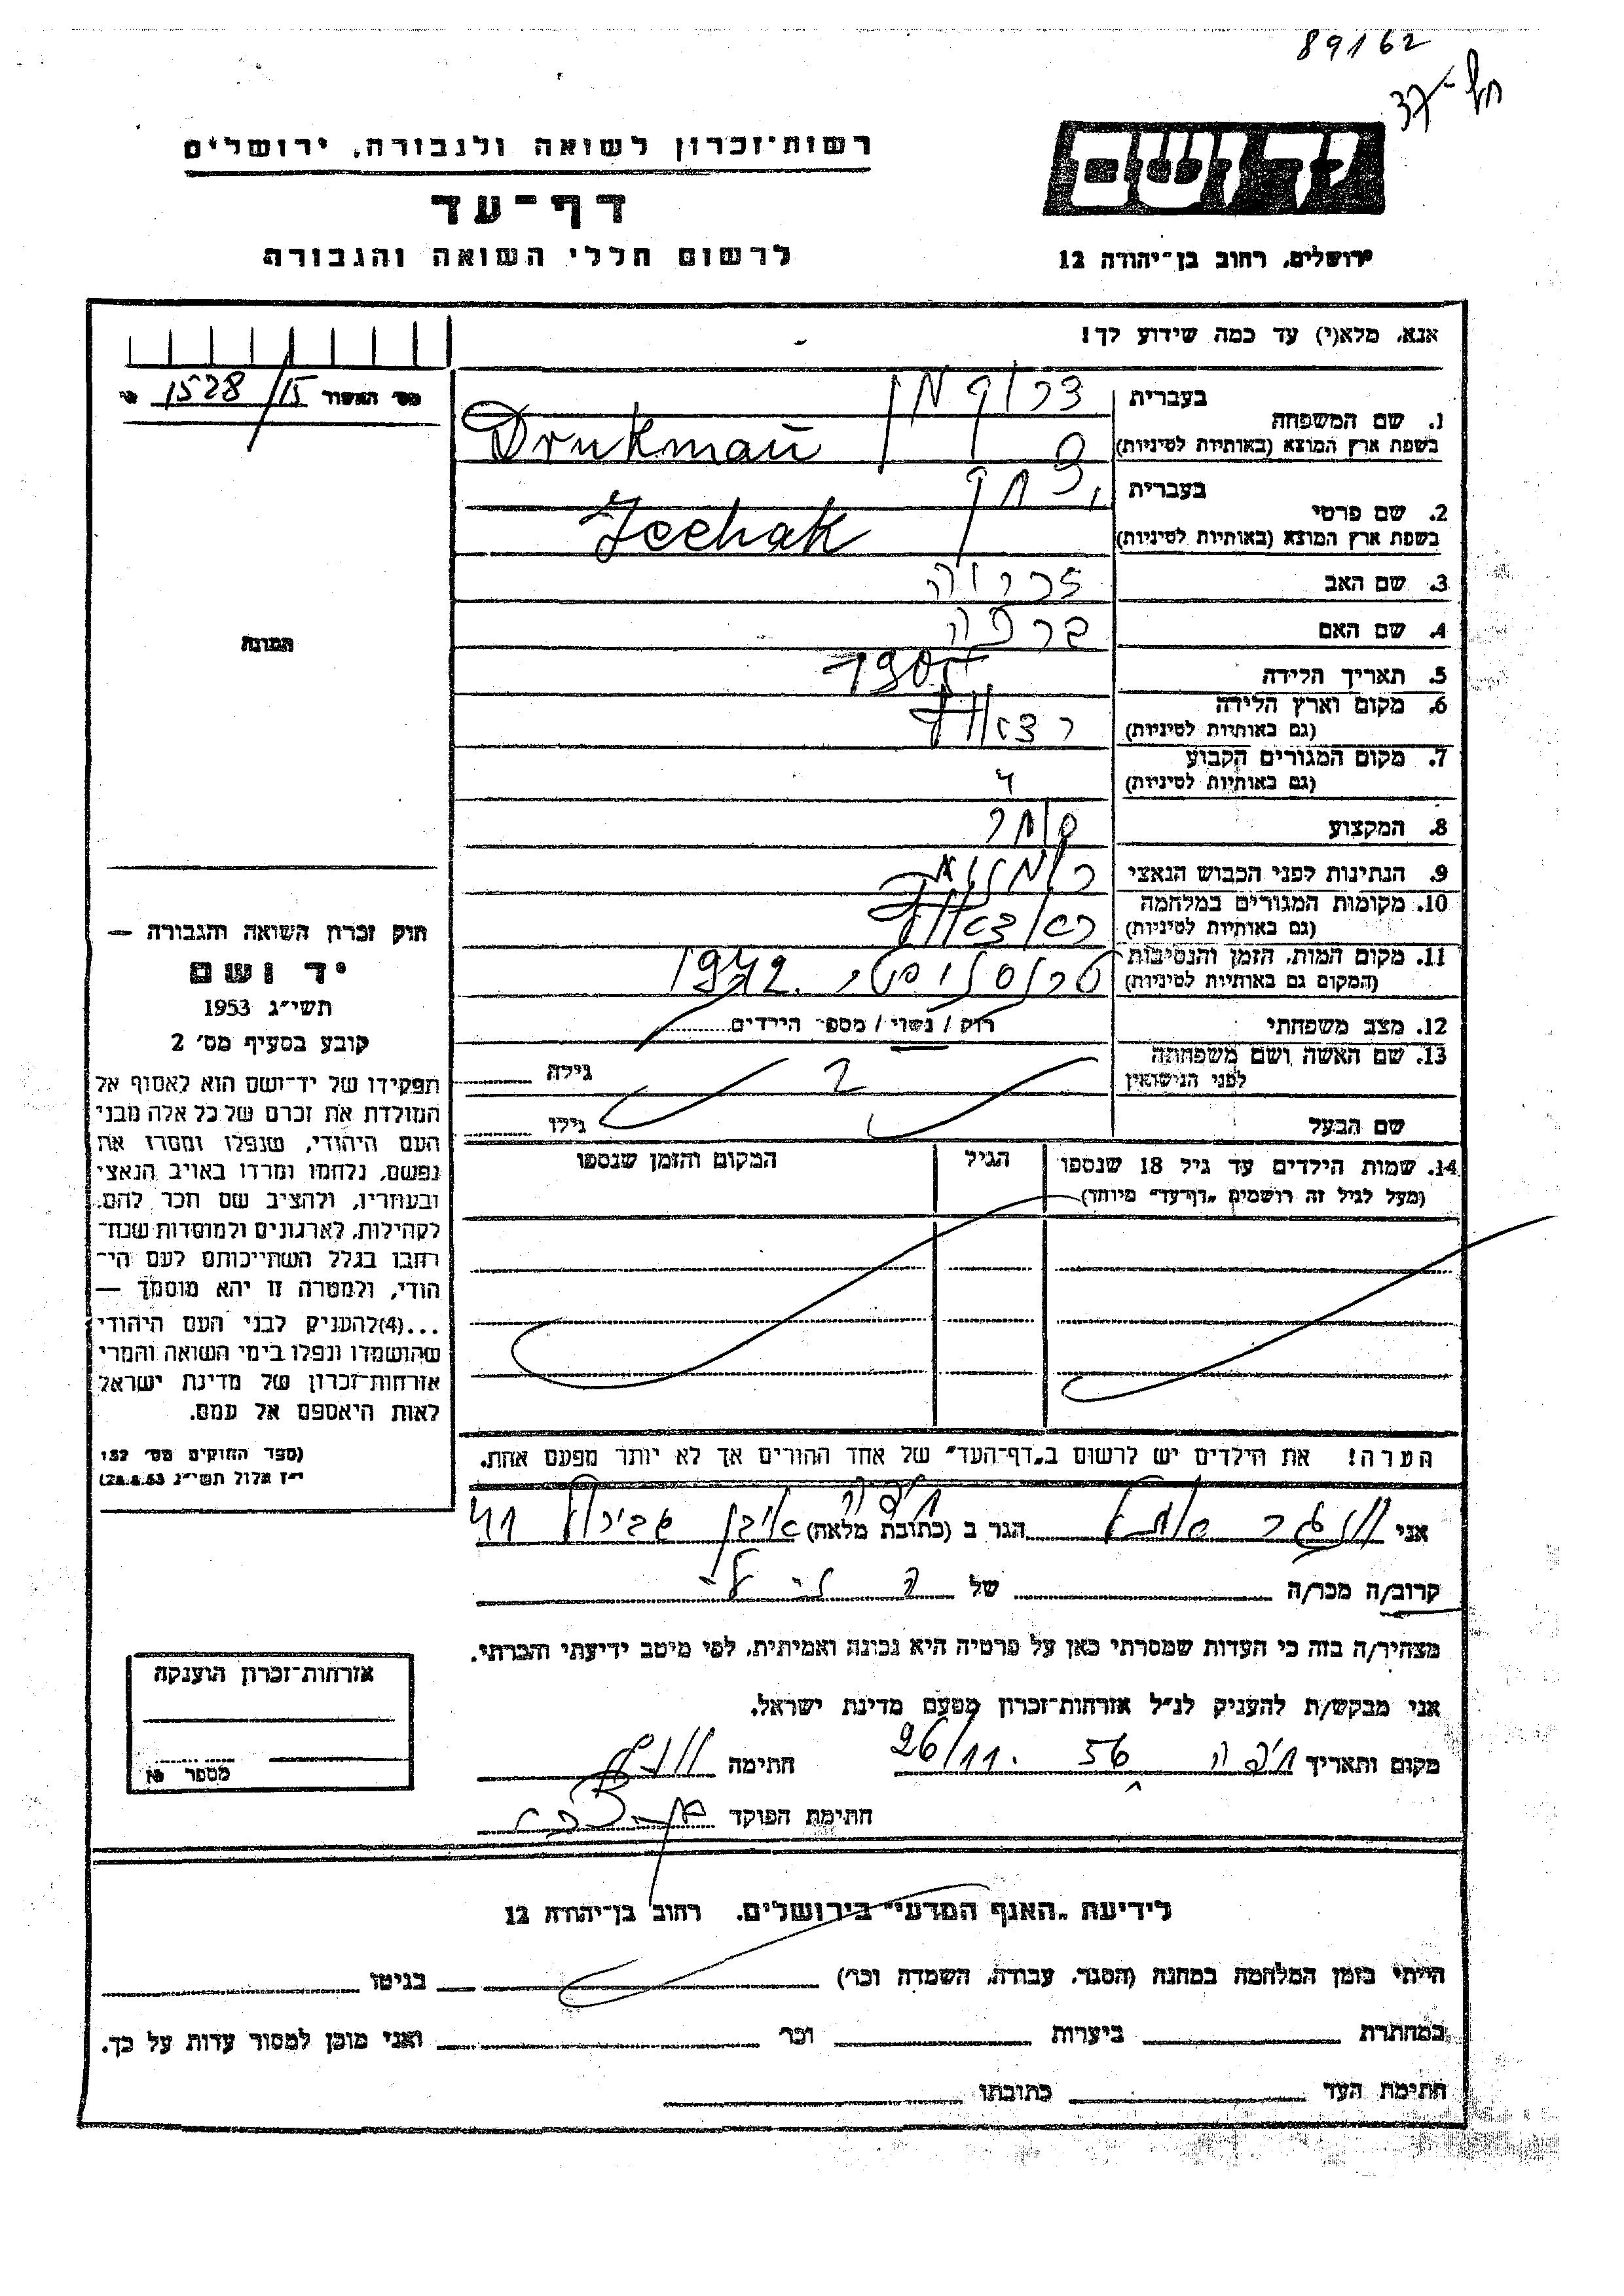 89162
יד ושם
רשות־זכרון לשואה ולגבורה, ירושלים
דף־עד
לרשום חללי השואה והגבורה
ירושלים, רחוב בן־יהודה 12
אנא, מלא(י) עד כמה שידוע לך!
מס׳ האשור 1528/15
1. שם המשפחה
בעברית דרוקמן
בשפת ארץ המוצא (באותיות לטיניות) Drukman
2. שם פרטי
בעברית יצחק
בשפת ארץ המוצא (באותיות לטיניות) Jcchak
3. שם האב זכריה
4. שם האם
5. תאריך הלידה 1903
6. מקום וארץ הלידה
(גם באותיות לטיניות)
7. מקום המגורים הקבוע
(גם באותיות לטיניות)
8. המקצוע סוחר
9. הנתינות לפני הכבוש הנאצי
10. מקומות המגורים במלחמה
(גם באותיות לטיניות)
11. מקום המות, הזמן והנסיבות טרנסניסטר. 1942
(המקום גם באותיות לטיניות)
12. מצב משפחתי רווק / נשוי / מספר הילדים
13. שם האשה ושם משפחתה
לפני הנישואין
גילה
שם הבעל
גילו
14. שמות הילדים עד גיל 18 שנספו
(מעל לגיל זה רושמים „דף־עד״ מיוחד)
הגיל
המקום והזמן שנספו
תמונה
חוק זכרון השואה והגבורה —
יד ושם
תשי״ג 1953
קובע בסעיף מס׳ 2
תפקידו של יד־ושם הוא לאסוף אל
המולדת את זכרם של כל אלה מבני
העם היהודי, שנפלו ומסרו את
נפשם, נלחמו ומרדו באויב הנאצי
ובעוזריו, ולהציב שם וזכר להם,
לקהילות, לארגונים ולמוסדות שנח־
רבו בגלל השתייכותם לעם הי־
הודי, ולמטרה זו יהא מוסמך —
...(4)להעניק לבני העם היהודי
שהושמדו ונפלו בימי השואה והמרי
אזרחות־זכרון של מדינת ישראל
לאות היאספם אל עמם.
(ספר החוקים מס׳ 132
י״ז אלול תשי״ג 28.8.53)
הערה! את הילדים יש לרשום ב„דף־העד״ של אחד ההורים אך לא יותר מפעם אחת.
אני הגר ב (כתובת מלאה) חיפה
קרוב/ה מכר/ה של
מצהיר/ה בזה כי העדות שמסרתי כאן על פרטיה היא נכונה ואמיתית, לפי מיטב ידיעתי והכרתי.
אני מבקש/ת להעניק לנ״ל אזרחות־זכרון מטעם מדינת ישראל.
מקום ותאריך חיפה 26/11. 56 חתימה
חתימת הפוקד
אזרחות־זכרון הוענקה
מספר
לידיעת „האגף המדעי״ בירושלים, רחוב בן־יהודה 12
הייתי בזמן המלחמה במחנה (הסגר, עבודה, השמדה וכו׳) בגיטו
במחתרת ביערות וכו׳ ואני מוכן למסור עדות על כך.
חתימת העד כתובתו